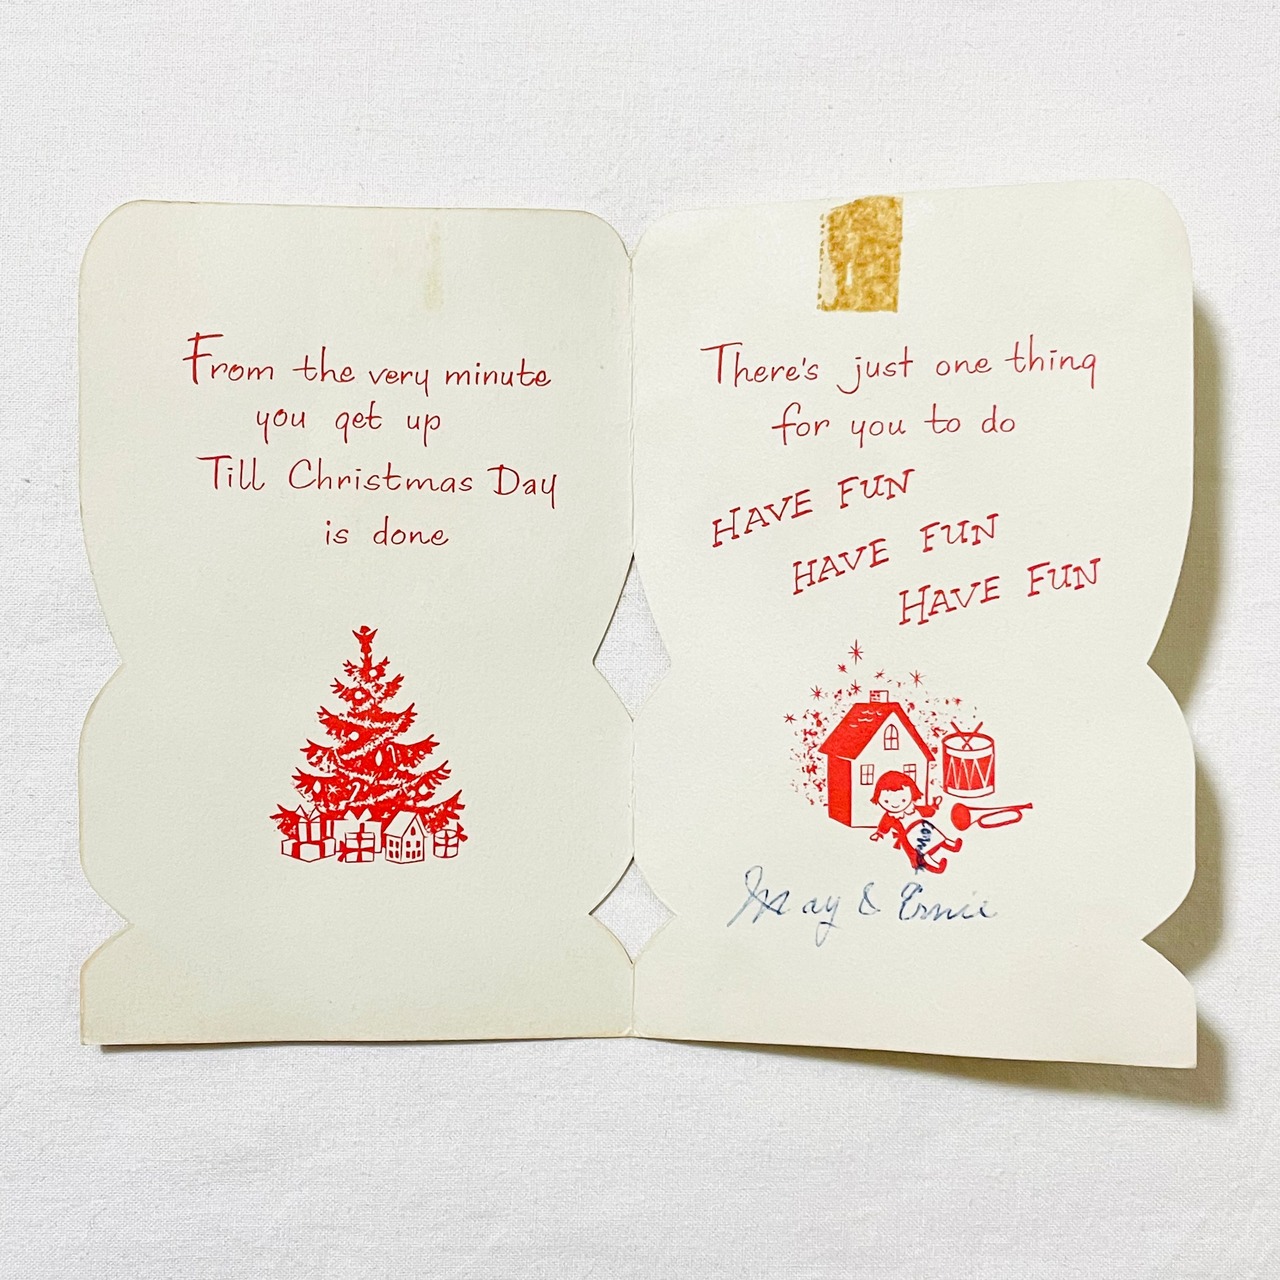 From the very minute
you get up
Till Christmas Day
is done
There's just one thing
for you to do
HAVE FUN
HAVE FUN
HAVE FUN
May & Ernie